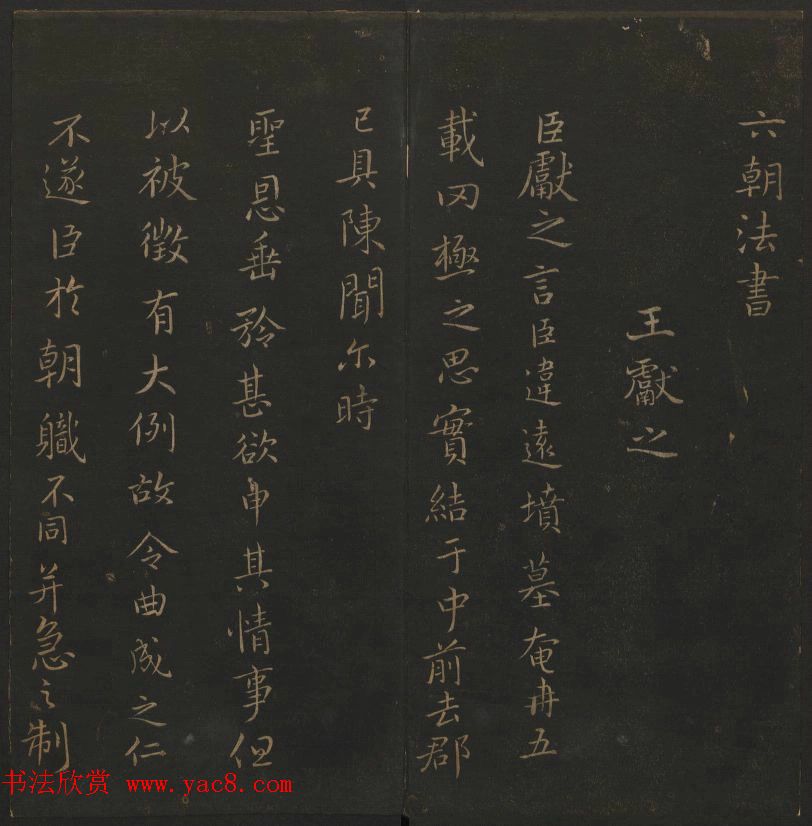 六朝法書
王獻之
臣獻之言臣違遠墳墓奄冉五
載罔極之思實結于中前去郡
已具陳聞尔時
聖恩垂矜甚欲申其情事但
以被徵有大例故令曲成之仁
不遂臣於朝軄不同并急之制
书法欣赏 www.yac8.com